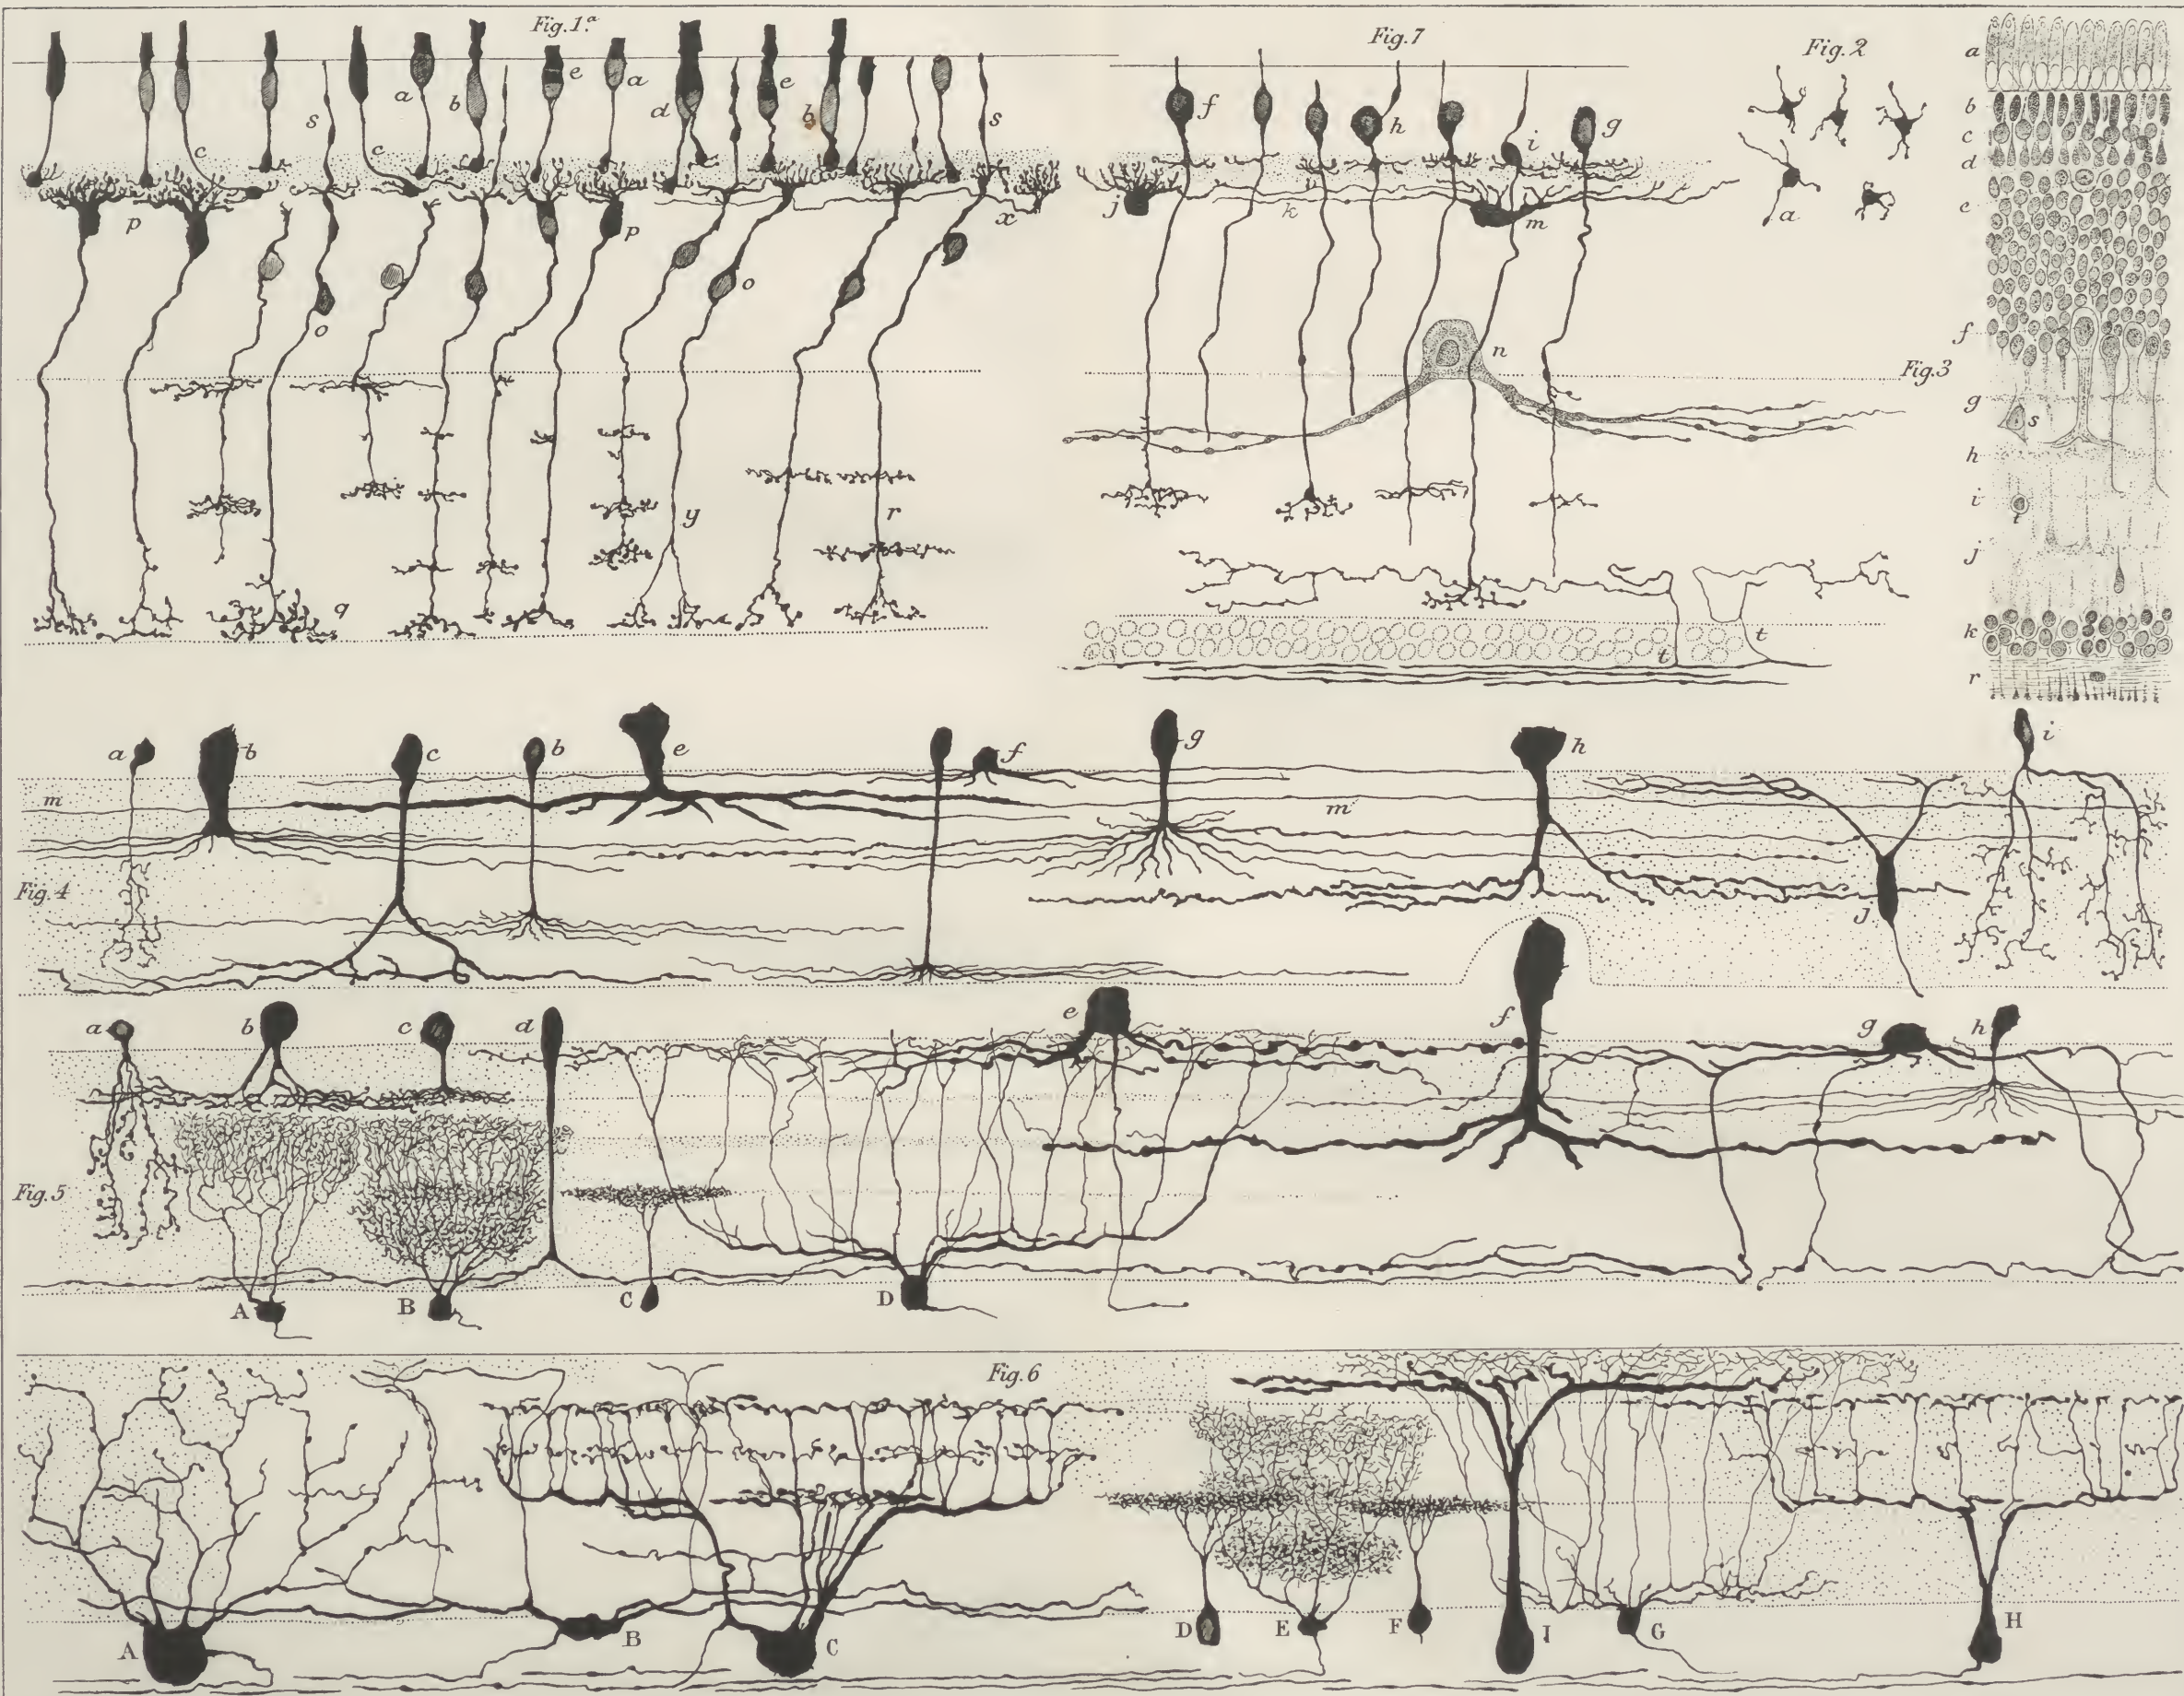 Fig.1.ª
a b e a d e b
s c c s
p p x
o o
y r
q
Fig.7
f h i g
j k m
n
t t
Fig.2
a
Fig.3
a
b
c
d
e
f
g s
h
i t
j
k
r
Fig.4
a b c b e f g h i
m m
j
Fig.5
a b c d e f g h
A B C D
Fig.6
A B C D E F I G H